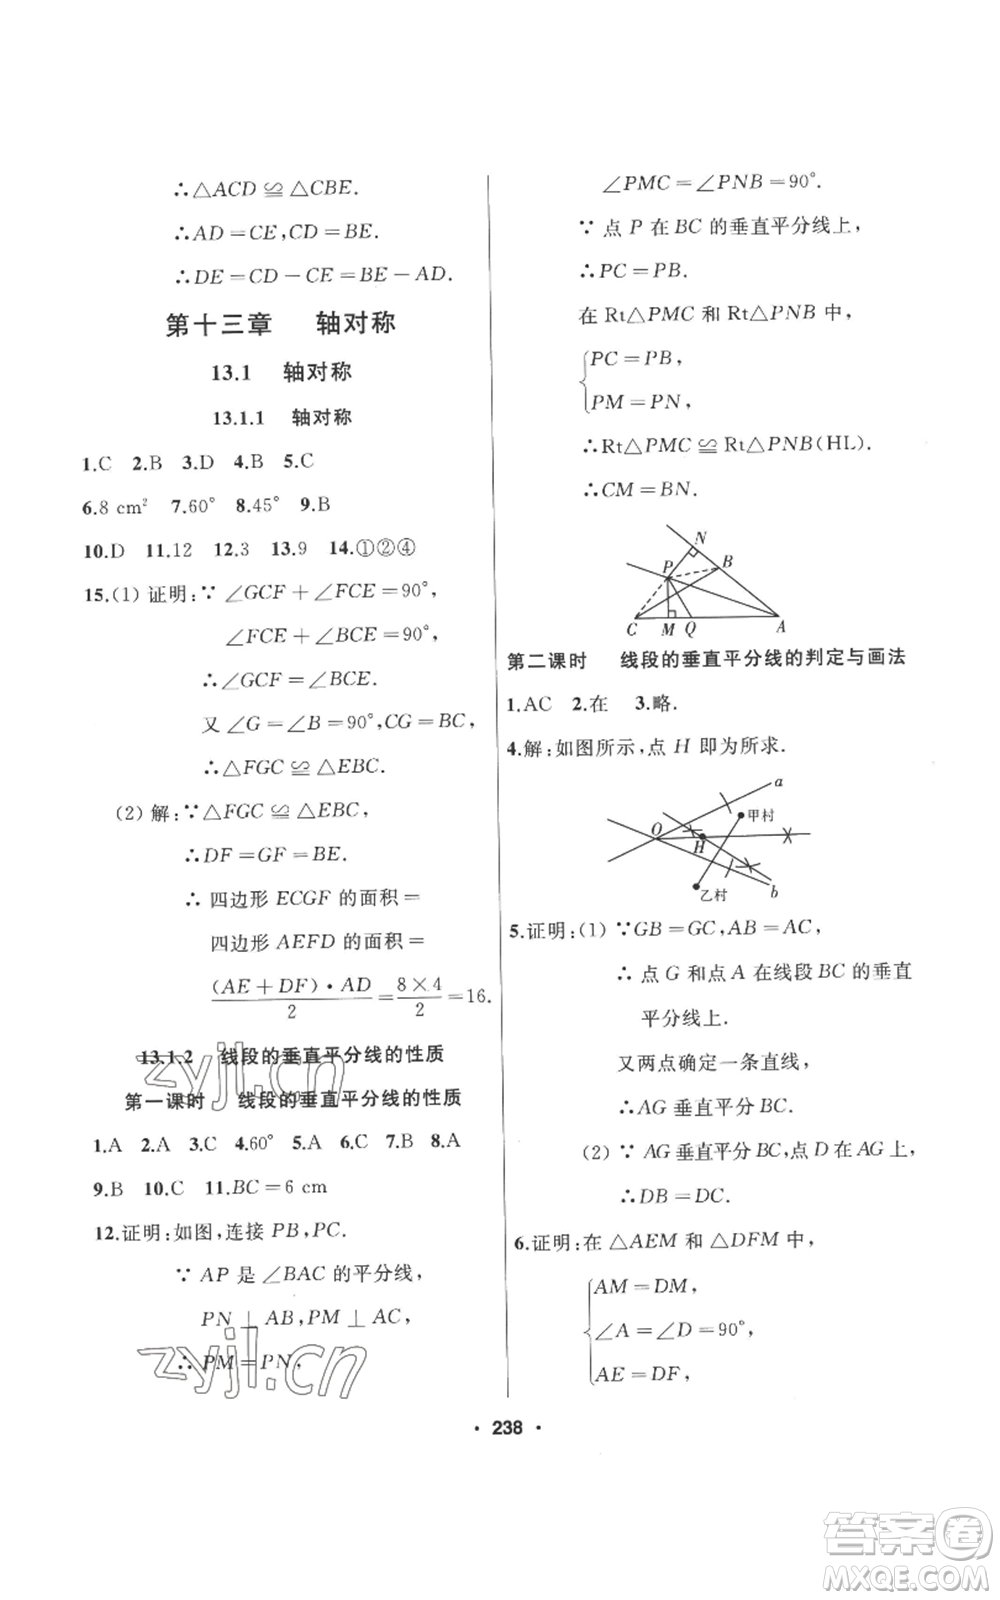 ∴△ACD≌△CBE.
∴AD=CE,CD=BE.
∴DE=CD-CE=BE-AD.
第十三章 轴对称
13.1 轴对称
13.1.1 轴对称
1.C 2.B 3.D 4.B 5.C
6.8 cm² 7.60° 8.45° 9.B
10.D 11.12 12.3 13.9 14.①②④
15.(1) 证明:∵∠GCF+∠FCE=90°,
∠FCE+∠BCE=90°,
∴∠GCF=∠BCE.
又∠G=∠B=90°,CG=BC,
∴△FGC≌△EBC.
(2) 解:∵△FGC≌△EBC,
∴DF=GF=BE.
∴四边形 ECGF 的面积=
四边形 AEFD 的面积=
(AE+DF)·AD/2=8×4/2=16.
13.1.2 线段的垂直平分线的性质
第一课时 线段的垂直平分线的性质
1.A 2.A 3.C 4.60° 5.A 6.C 7.B 8.A
9.B 10.C 11.BC=6 cm
12.证明:如图,连接 PB,PC.
∵ AP 是∠BAC 的平分线,
PN⊥AB,PM⊥AC,
∴PM=PN,
∠PMC=∠PNB=90°.
∵点 P 在 BC 的垂直平分线上,
∴PC=PB.
在 Rt△PMC 和 Rt△PNB 中,
PC=PB,
PM=PN,
∴Rt△PMC≌Rt△PNB(HL).
∴CM=BN.
N
B
P
C M Q A
第二课时 线段的垂直平分线的判定与画法
1.AC 2.在 3.略.
4.解:如图所示,点 H 即为所求.
a
甲村
O
H
乙村
b
5.证明:(1) ∵GB=GC,AB=AC,
∴点 G 和点 A 在线段 BC 的垂直
平分线上.
又两点确定一条直线,
∴AG 垂直平分 BC.
(2) ∵ AG 垂直平分 BC,点 D 在 AG 上,
∴DB=DC.
6.证明:在△AEM 和△DFM 中,
AM=DM,
∠A=∠D=90°,
AE=DF,
· 238 ·
zyjl.cn
zyjl.cn
答案圈
MXQE.COM